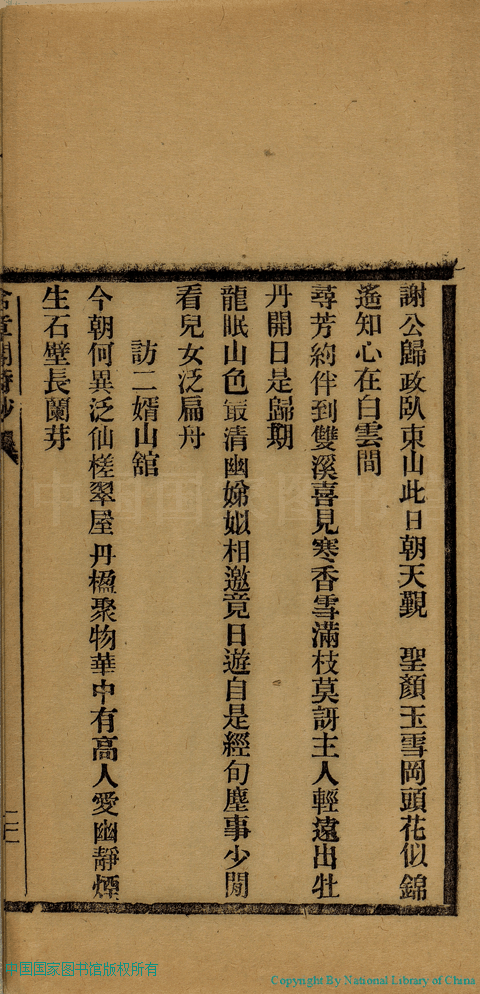 謝公歸政臥東山此日朝天覲　聖顏玉雪岡頭花似錦
遙知心在白雲間
尋芳約伴到雙溪喜見寒香雪滿枝莫訝主人輕遠出牡
丹開日是歸期
龍眠山色最清幽娣姒相邀竟日遊自是經旬塵事少閒
看兒女泛扁舟
訪二婿山舘
今朝何異泛仙槎翠屋丹楹聚物華中有高人愛幽靜煙
生石壁長蘭芽
二
中国国家图书馆版权所有
Copyright By National Library of China